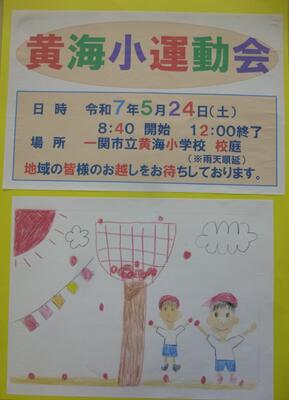 黄海小運動会
日　時　令和7年5月24日(土)
8:40 開始　12:00終了
場　所　一関市立黄海小学校 校庭
(※雨天順延)
地域の皆様のお越しをお待ちしております。